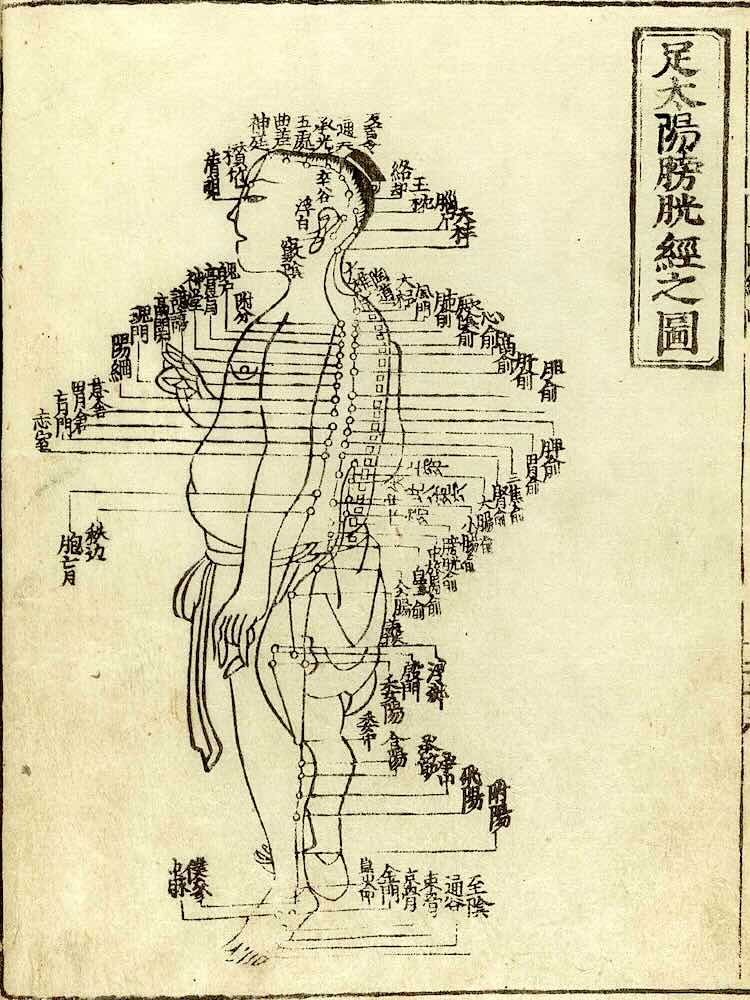 足太陽膀胱經之圖
神庭
曲差
五處
承光
通天
絡却
玉枕
腦戶
天柱
率谷
浮白
竅陰
大杼
陶道
風門
肺俞
厥陰俞
心俞
膈俞
肝俞
胆俞
脾俞
胃俞
三焦俞
腎俞
大腸俞
小腸俞
膀胱俞
附分
魄戶
膏肓
神堂
譩譆
膈關
魂門
陽綱
胃倉
肓門
志室
秩边
胞肓
會陽
浮郄
殷門
委陽
委中
合陽
承筋
承山
飛陽
附陽
僕參
申脉
金門
京骨
束骨
通谷
至陰